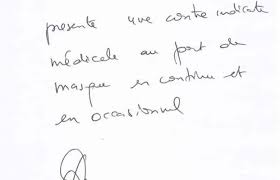 présente une contre indicate
médicale au port de
masque en continue et
en occasionnel